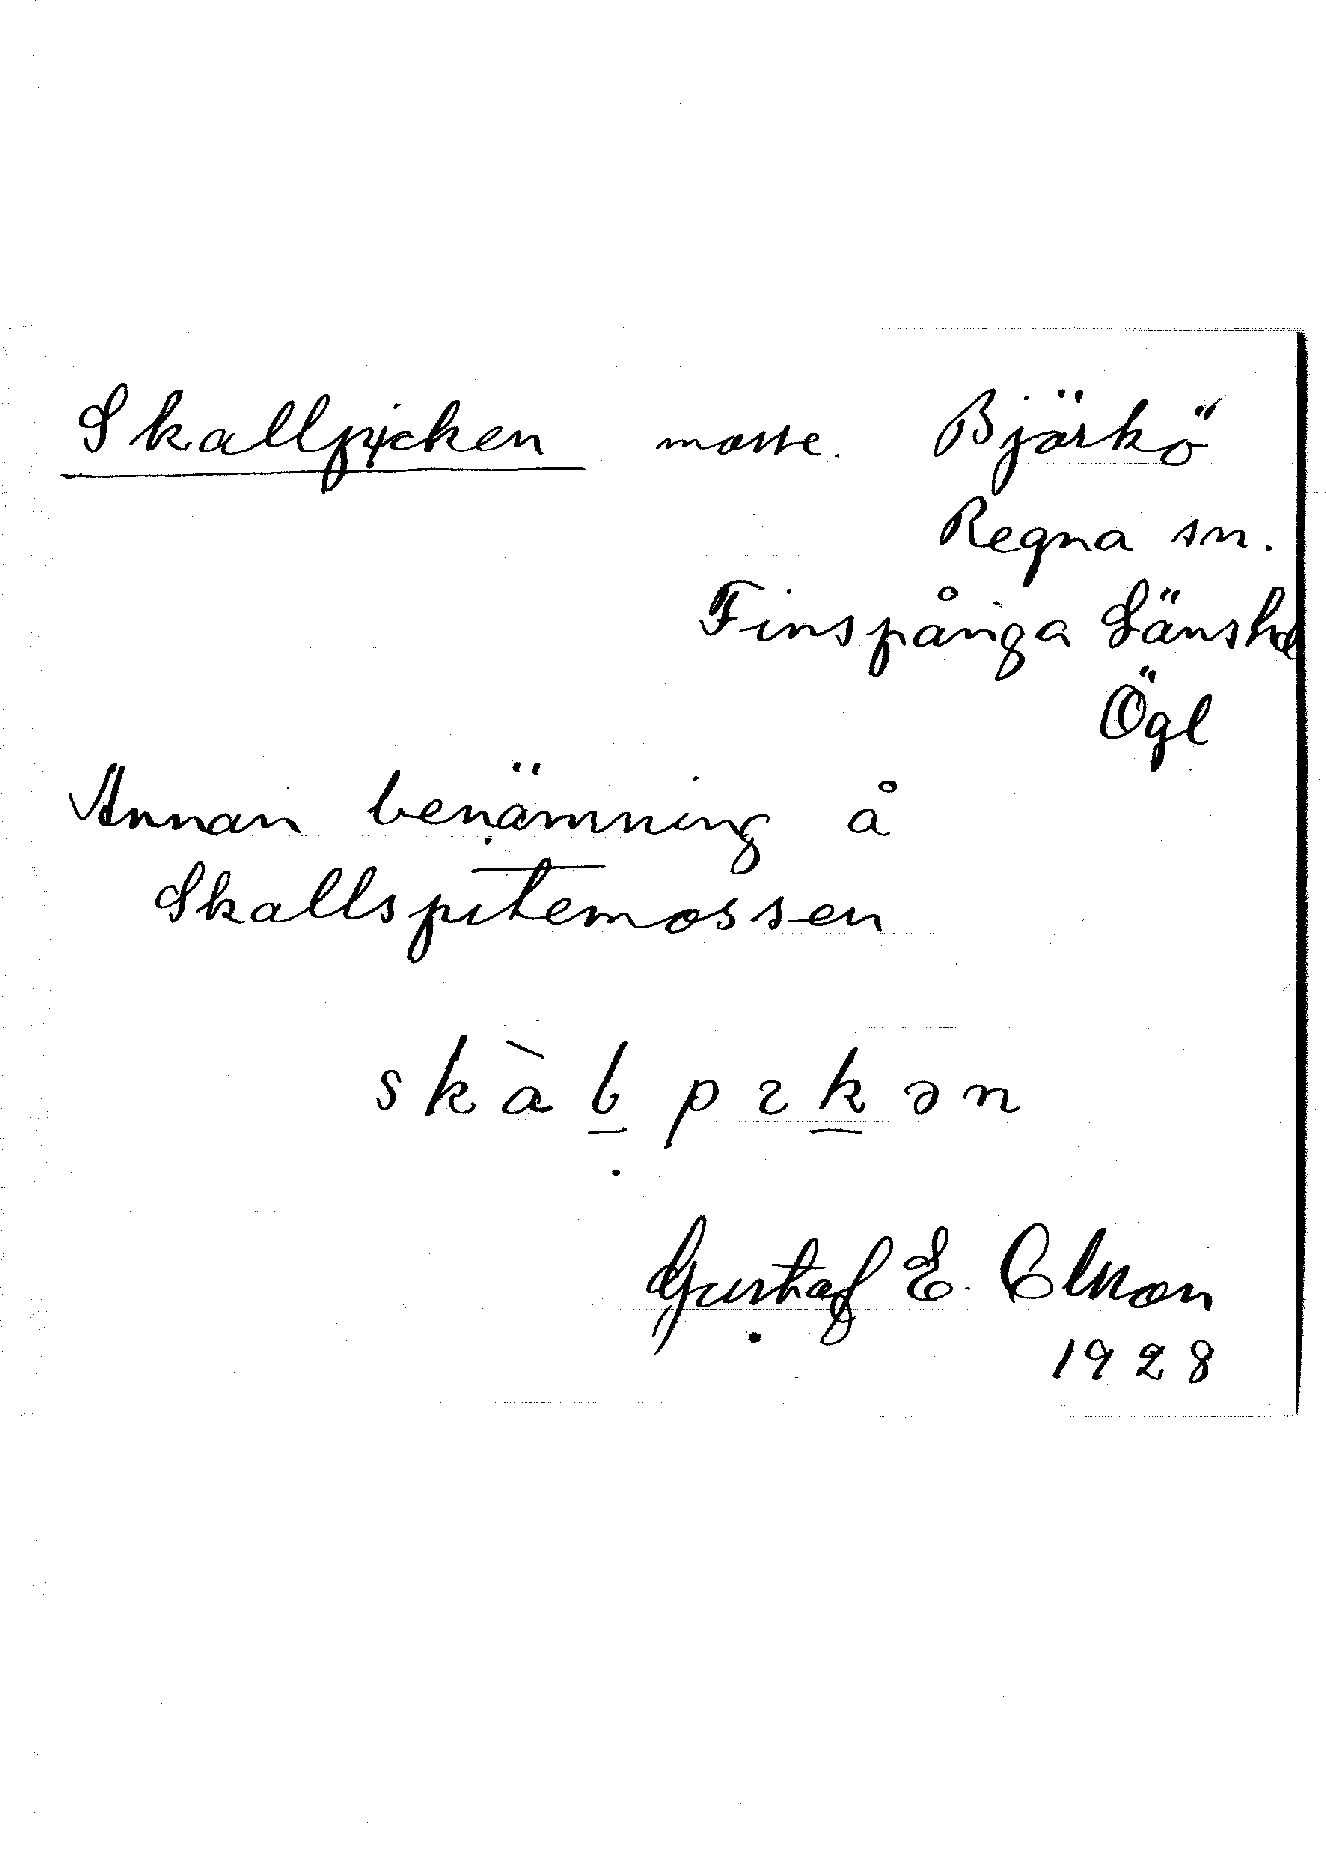 Skallpicken mosse. Björkö
Regna sn.
Finspånga Länshd
Ögl
Annan benämning å
Skallspitemossen
skàlpɪkən
Gustaf E. Olsson
1928